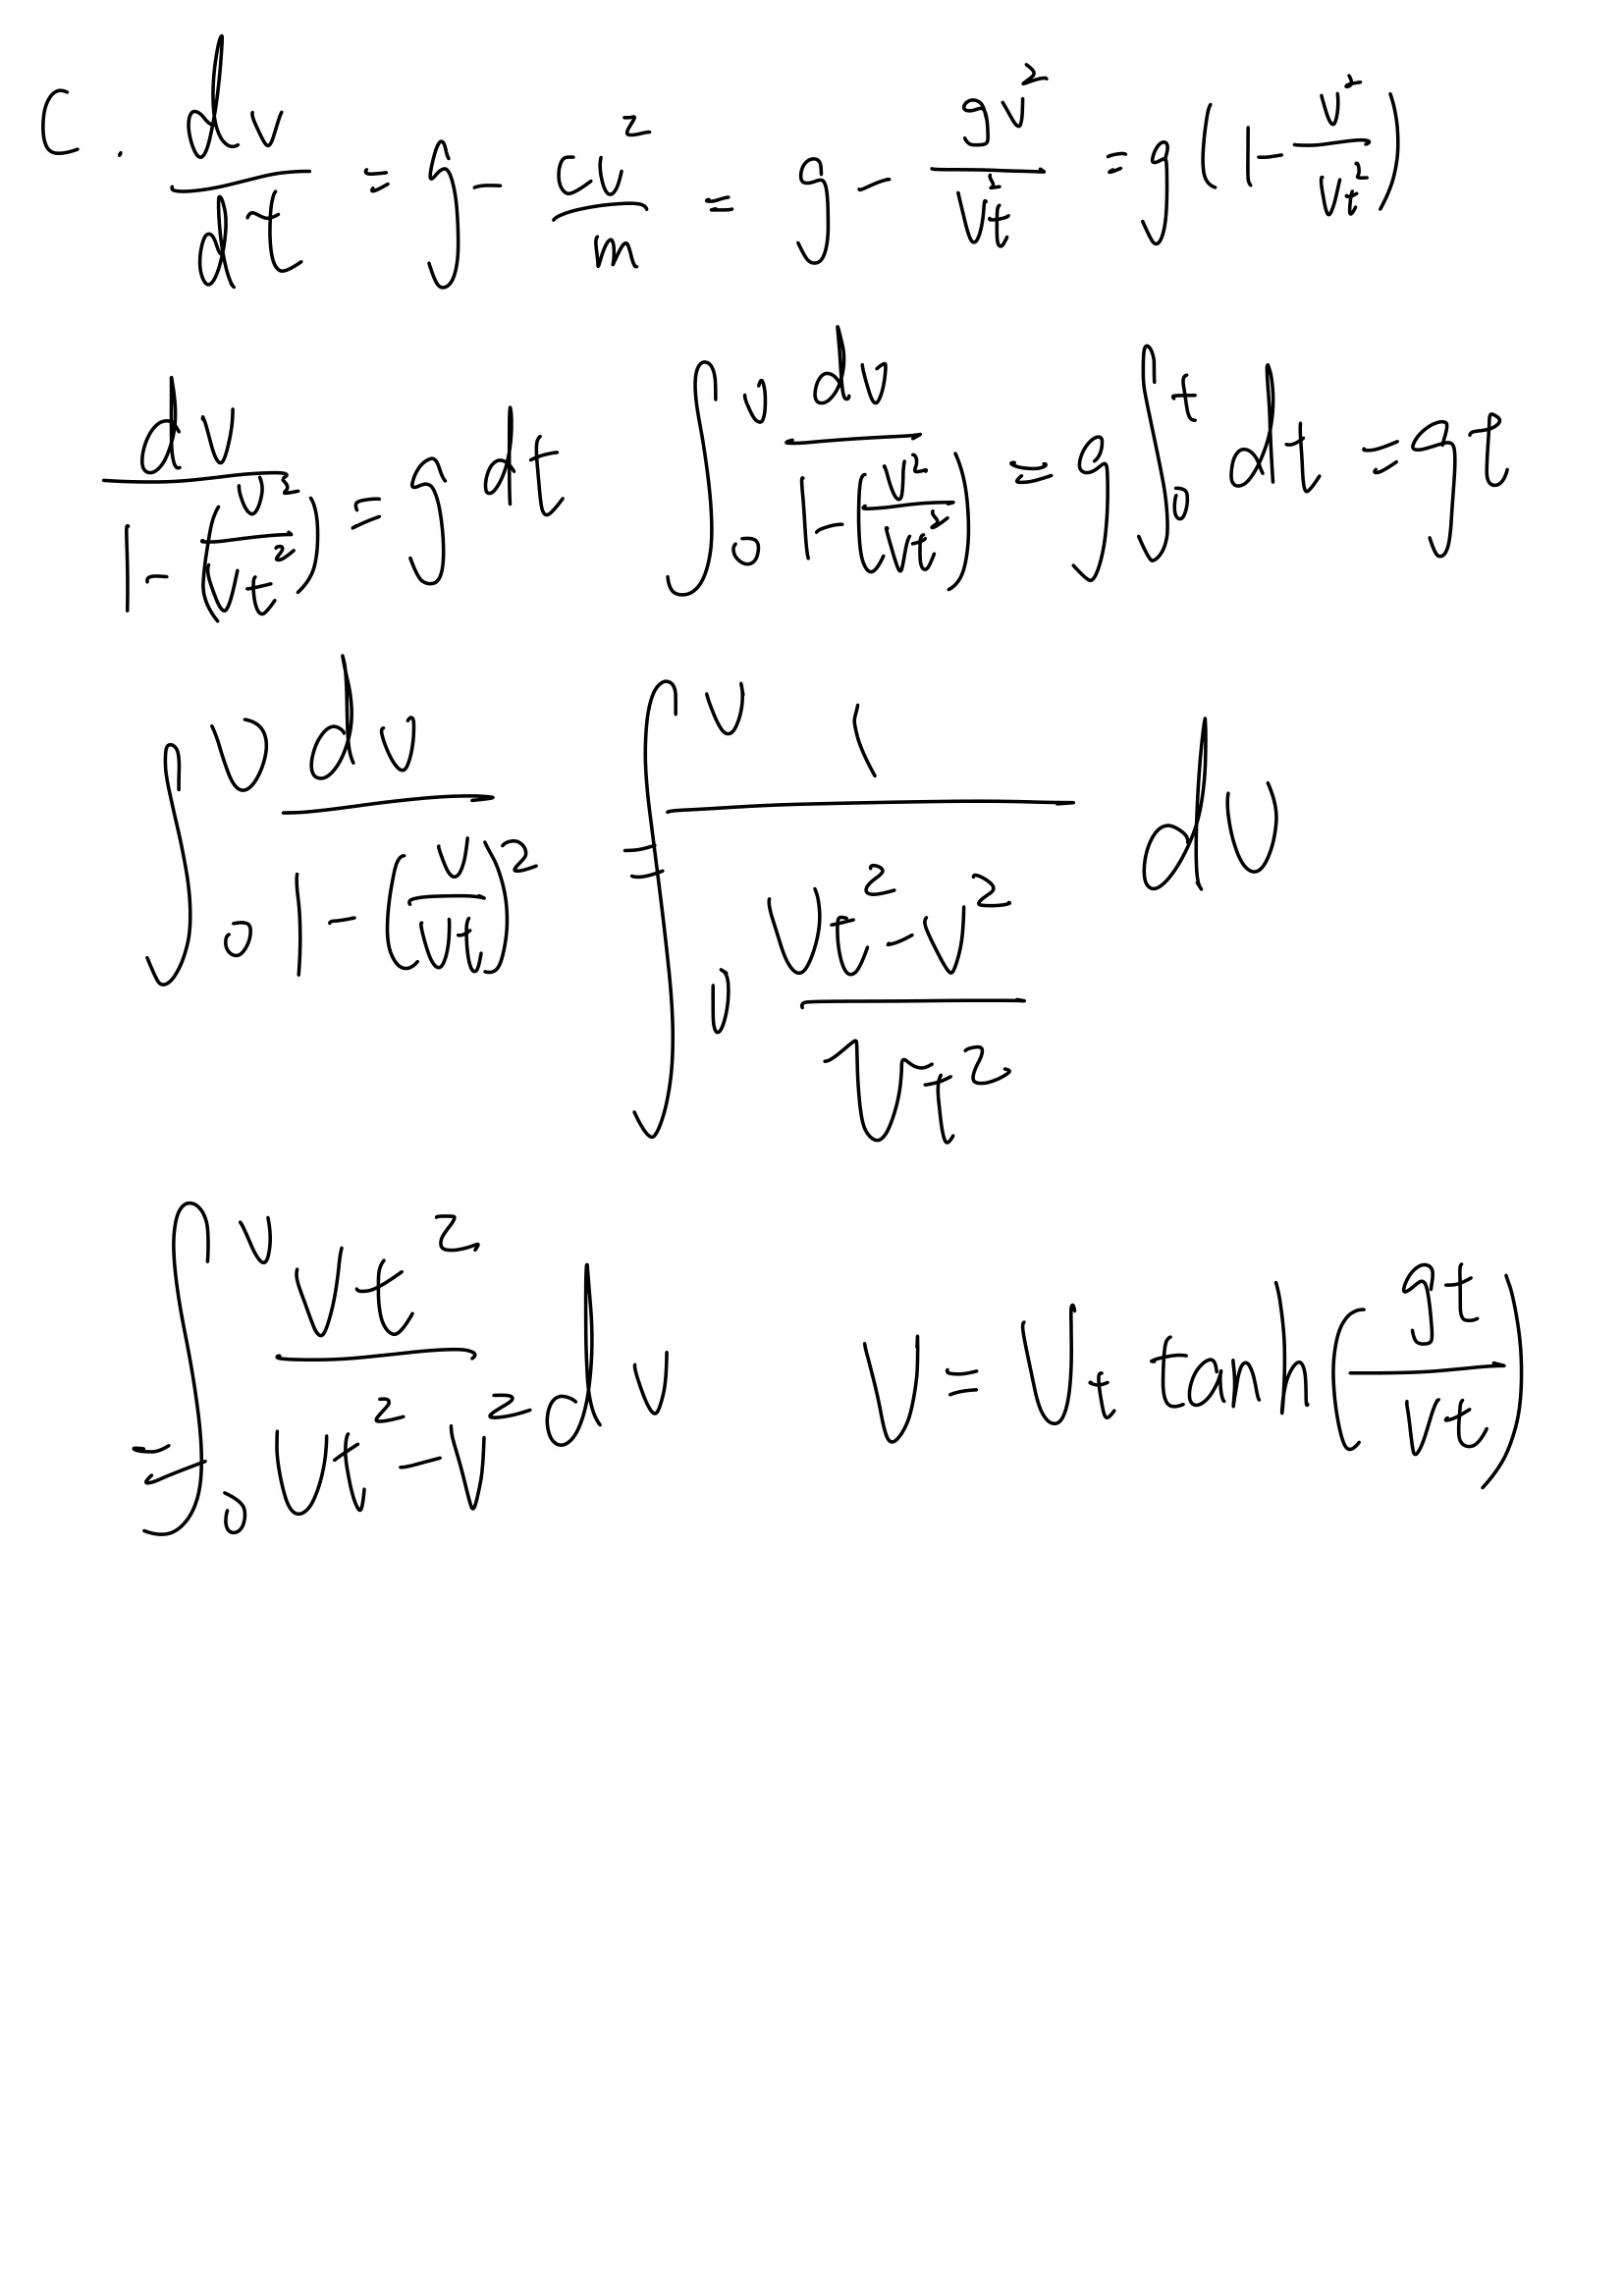 C. dv/dt = g - cv²/m = g - gv²/Vt² = g(1 - v²/Vt²)
dv/(1 - (v²/Vt²)) = g dt   ∫₀^v dv/(1 - (v²/Vt²)) = g ∫₀^t dt = gt
∫₀^v dv/(1 - (v/Vt)²) = ∫₀^v 1/((Vt² - v²)/Vt²) dv
= ∫₀^v Vt²/(Vt² - v²) dv   V = Vt tanh(gt/Vt)